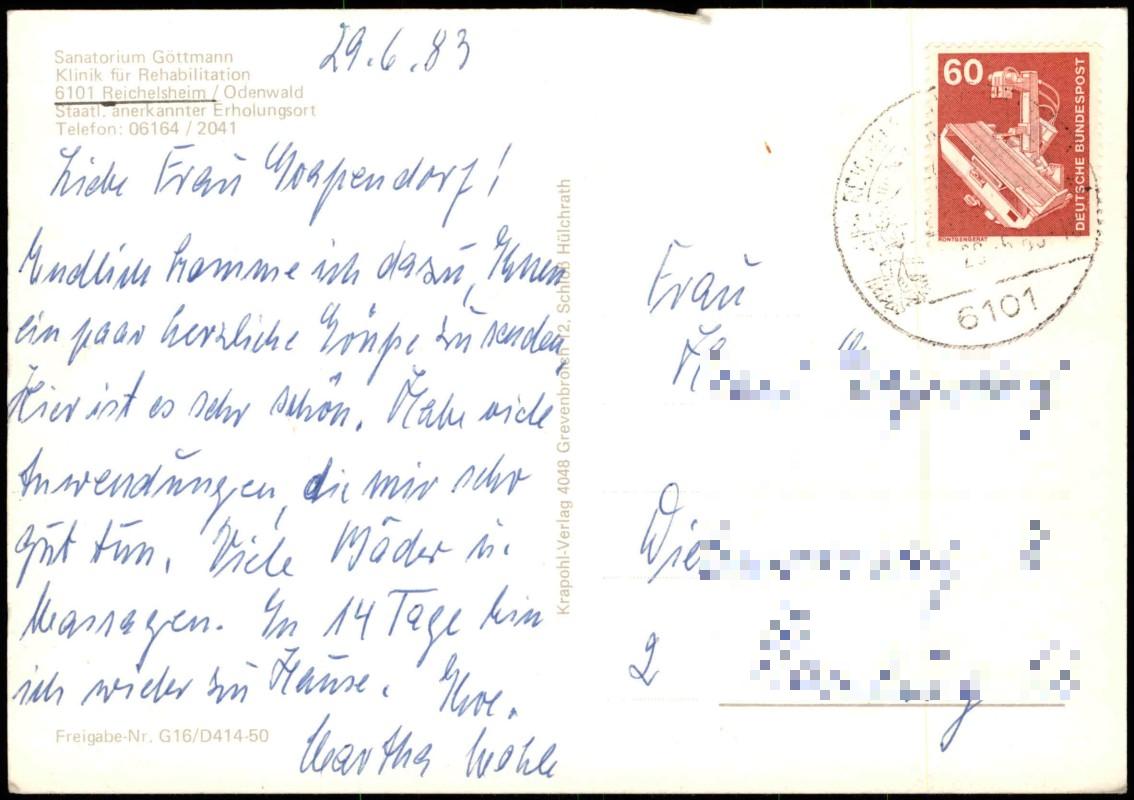 29.6.83
Sanatorium Göttmann
Klinik für Rehabilitation
6101 Reichelsheim / Odenwald
Staatl. anerkannter Erholungsort
Telefon: 06164 / 2041
Liebe Frau
Endlich komme ich dazu, Ihnen
ein paar herzliche Grüße zu senden,
Hier ist es sehr schön. Habe viele
Anwendungen, die mir sehr
gut tun. Viele Bäder u.
Massagen. In 14 Tage bin
ich wieder zu Hause. Ihre.
Martha
Freigabe-Nr. G16/D414-50
Krapohl-Verlag 4048 Grevenbroich 12, Schloß Hülchrath
60
DEUTSCHE BUNDESPOST
RÖNTGENGERÄT
6101
Frau
2